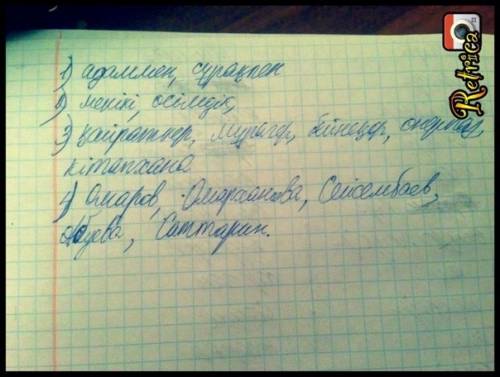 1) адаммен, сұрақпен
2) менікі, өсімдік,
3) Қайраткер, мұрагер, бейнеқор, өнерпаз
кітапхана
4) Омаров, Омарханова, Сейсембаев,
Абуева, Саттарин.
Retrica